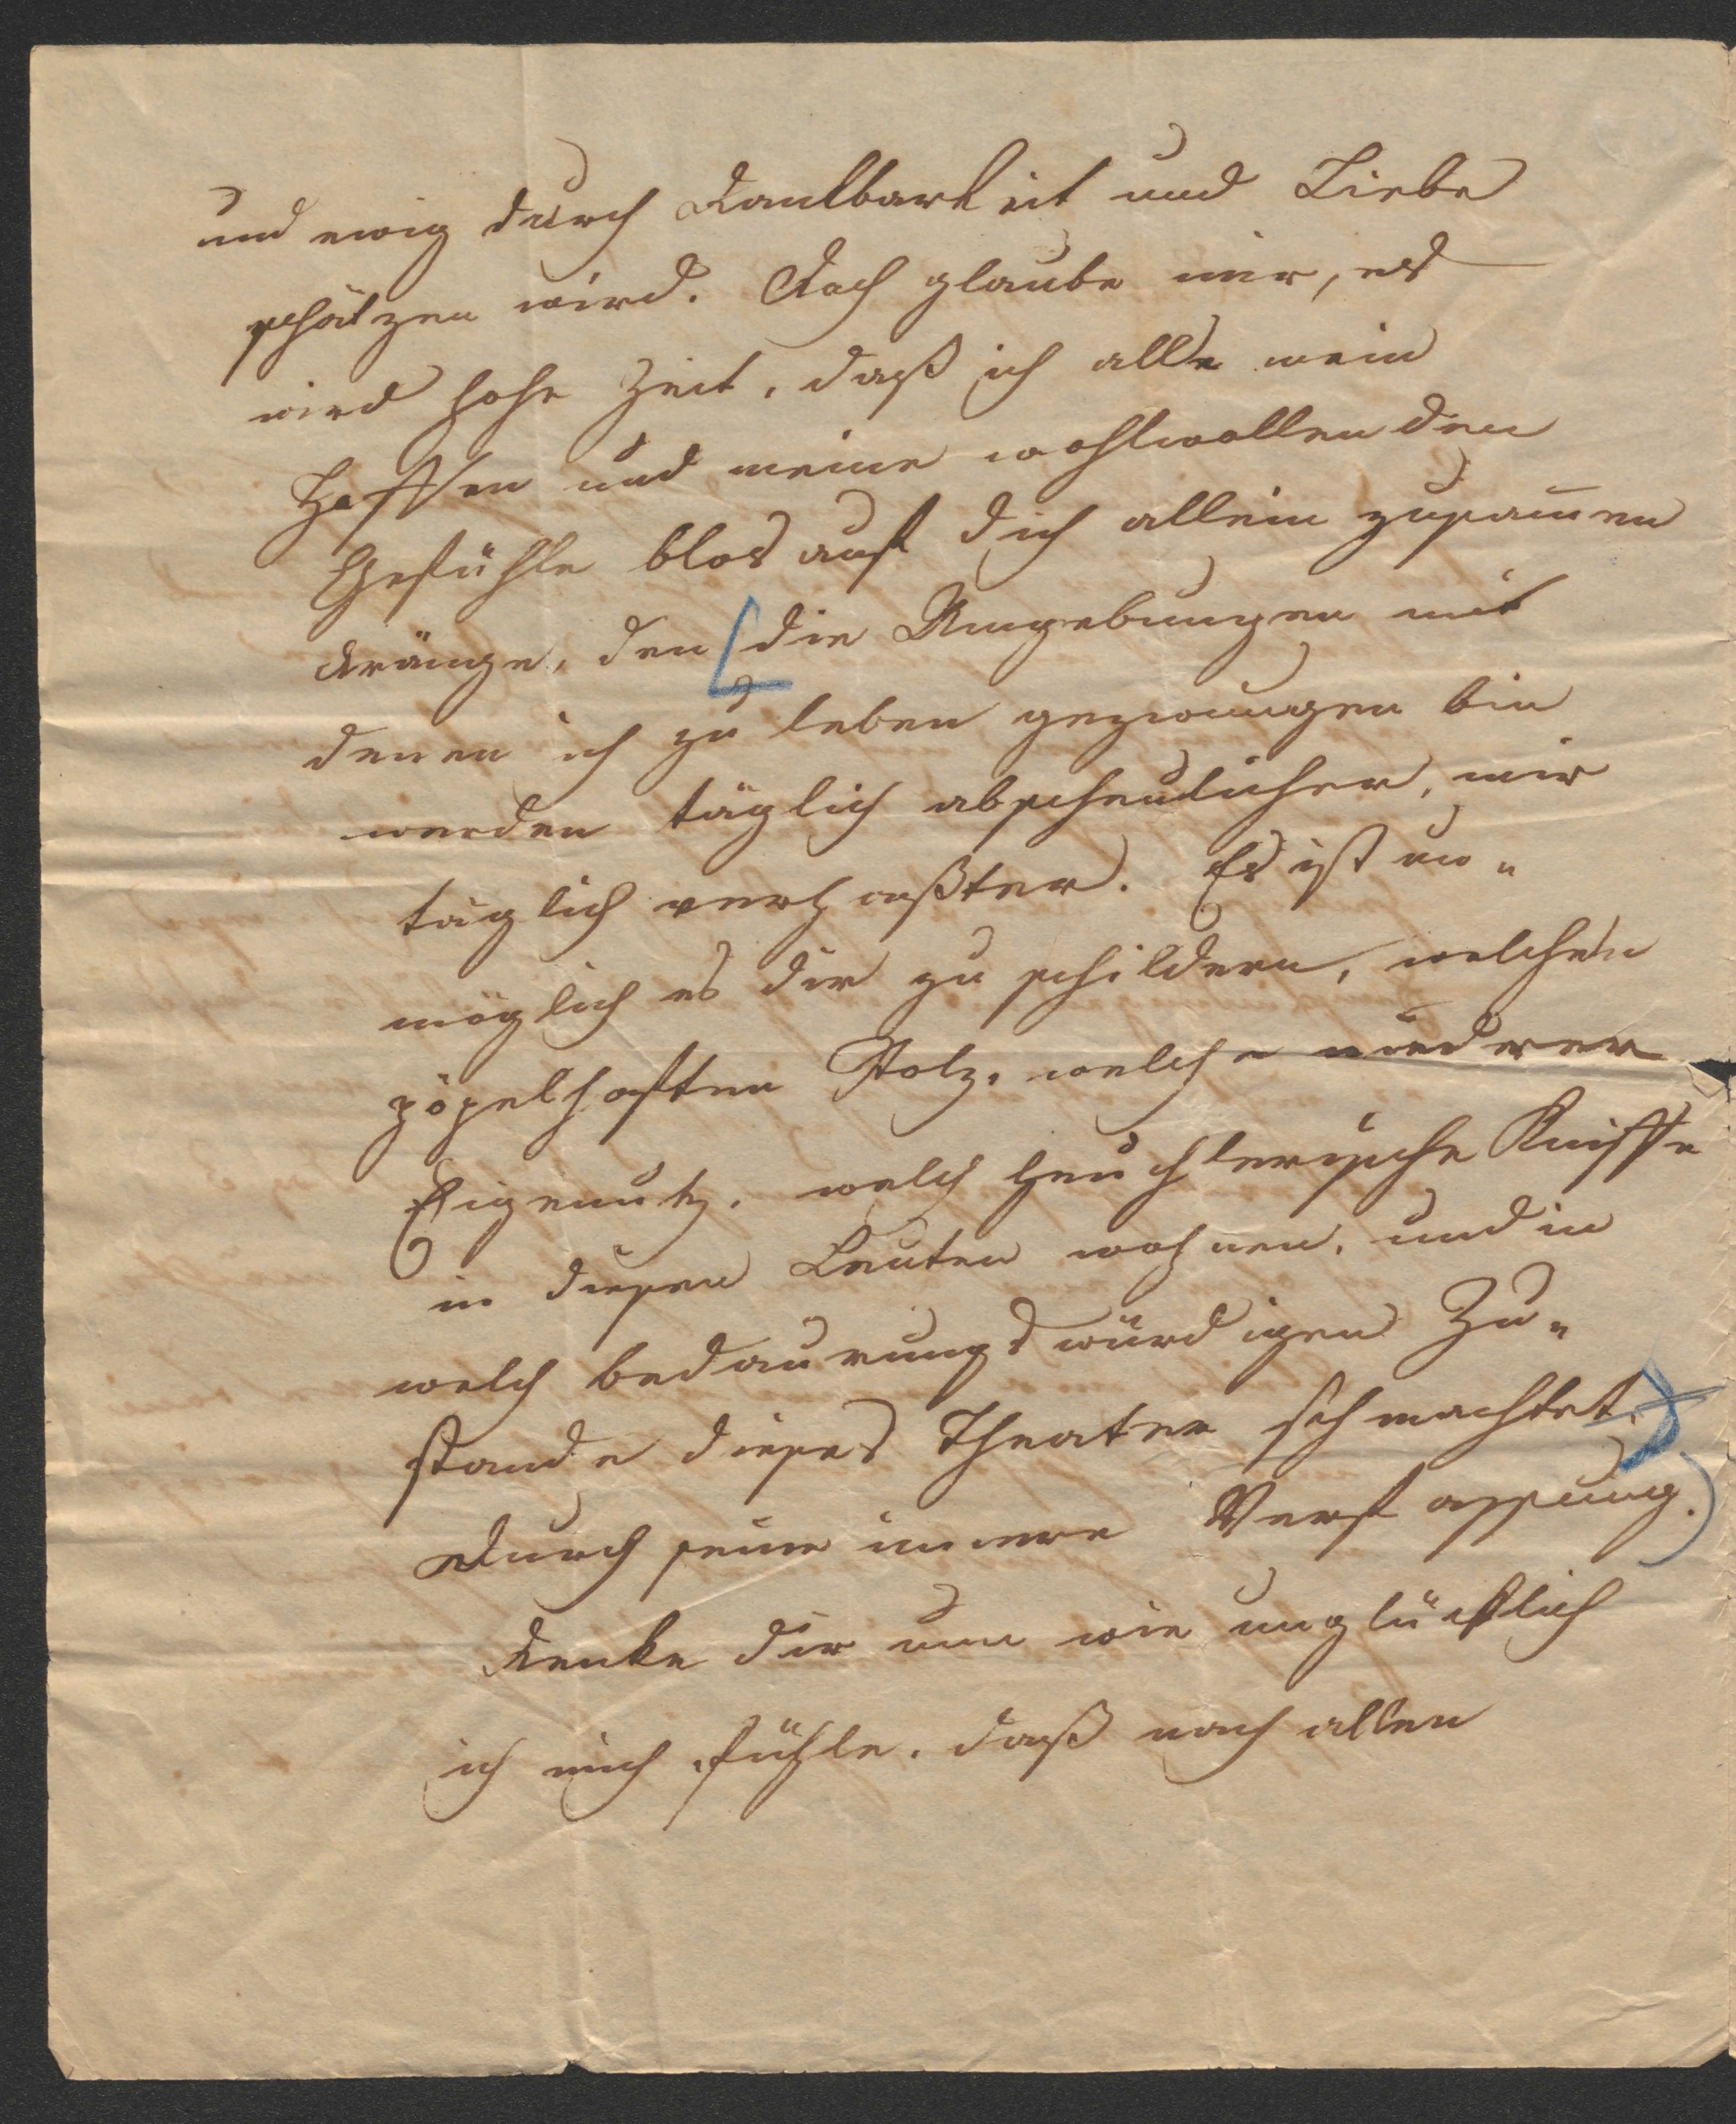 und ewig durch Dankbarkeit und Liebe
schätzen wird. Doch glaube mir, es
wird hohe Zeit, daß ich alle mein
Hoffen und meine wohlwollenden
Gefühle blos auf dich allein zusam̅en
dränge, den die Umgebungen mit
denen ich zu leben gezwungen bin
werden täglich abscheulicher, mir
täglich verhaßter. Es ist un„
möglich es dir zu schildern, welchen
pöpelhaften Stolz, welche niederer
Eigenutz, welch heuchlerische Kniffe
in diesen Leuten wohnen, und in
welch bedaurungswürdigen Zu„
stande dieses Theater schmachtet,
durch seine innere Verfassung.
denke dir nun wie unglücklich
ich mich fühle, daß nach allen